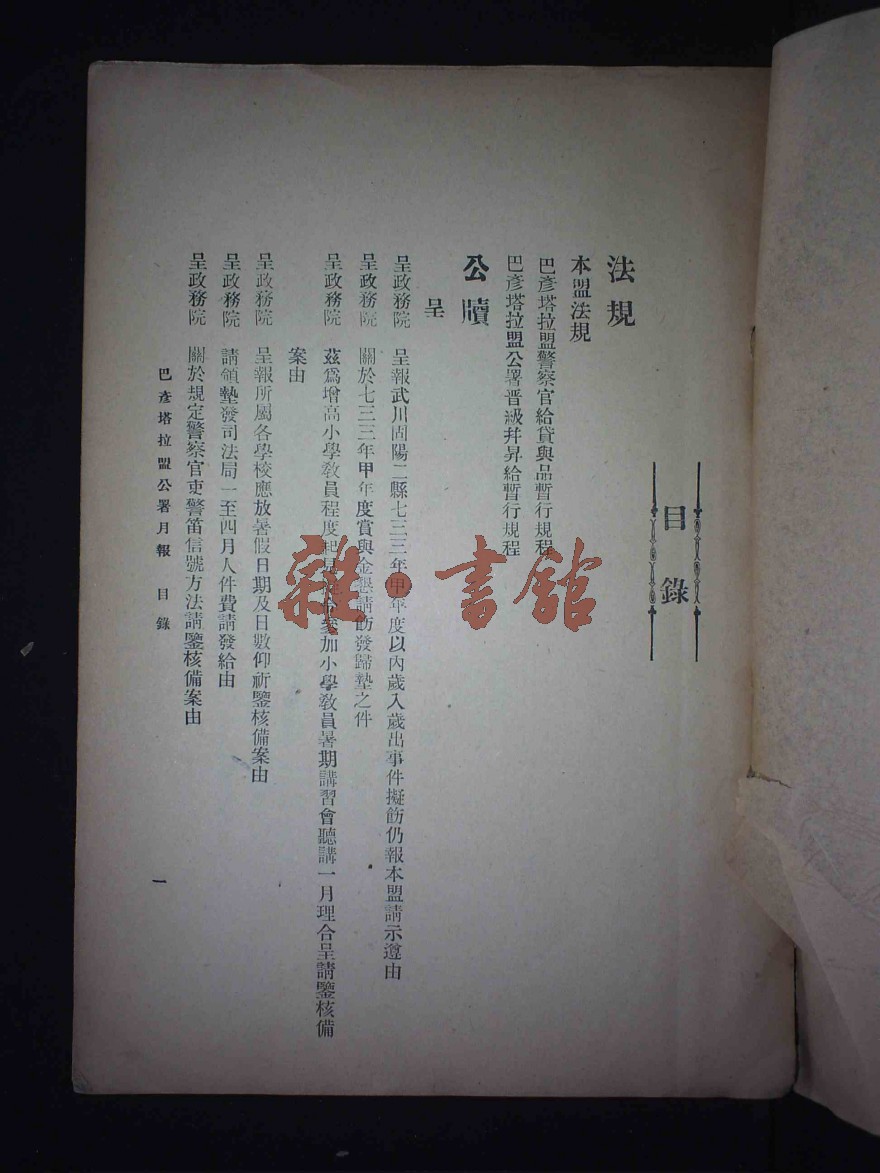 目錄
法規
本盟法規
巴彥塔拉盟警察官給貸與品暫行規程
巴彥塔拉盟公署晋級幷昇給暫行規程
公牘
呈
呈政務院 呈報武川固陽二縣七三三年甲年度以內歲入歲出事件擬飭仍報本盟請示遵由
呈政務院 關於七三三年甲年度賞與金懇請飭發歸墊之件
呈政務院 茲爲增高小學敎員程度起見 加小學敎員暑期講習會聽講一月理合呈請鑒核備
案由
呈政務院 呈報所屬各學校應放暑假日期及日數仰祈鑒核備案由
呈政務院 請領墊發司法局一至四月人件費請發給由
呈政務院 關於規定警察官吏警笛信號方法請鑒核備案由
巴彥塔拉盟公署月報 目錄
一
雜·書館